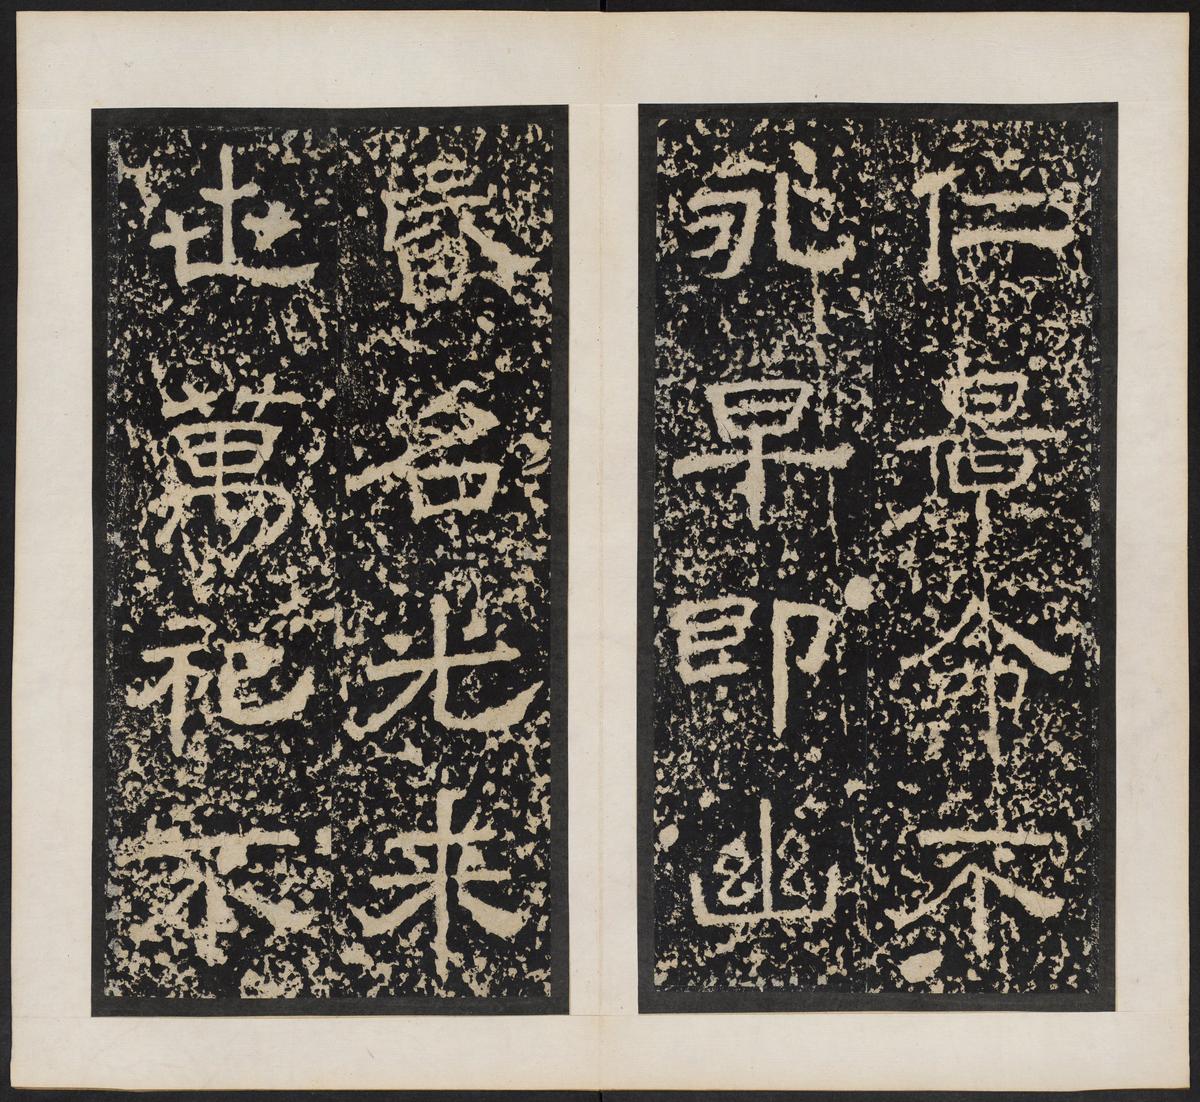 仁景命不
永早即幽
昬名光来
世萬祀不